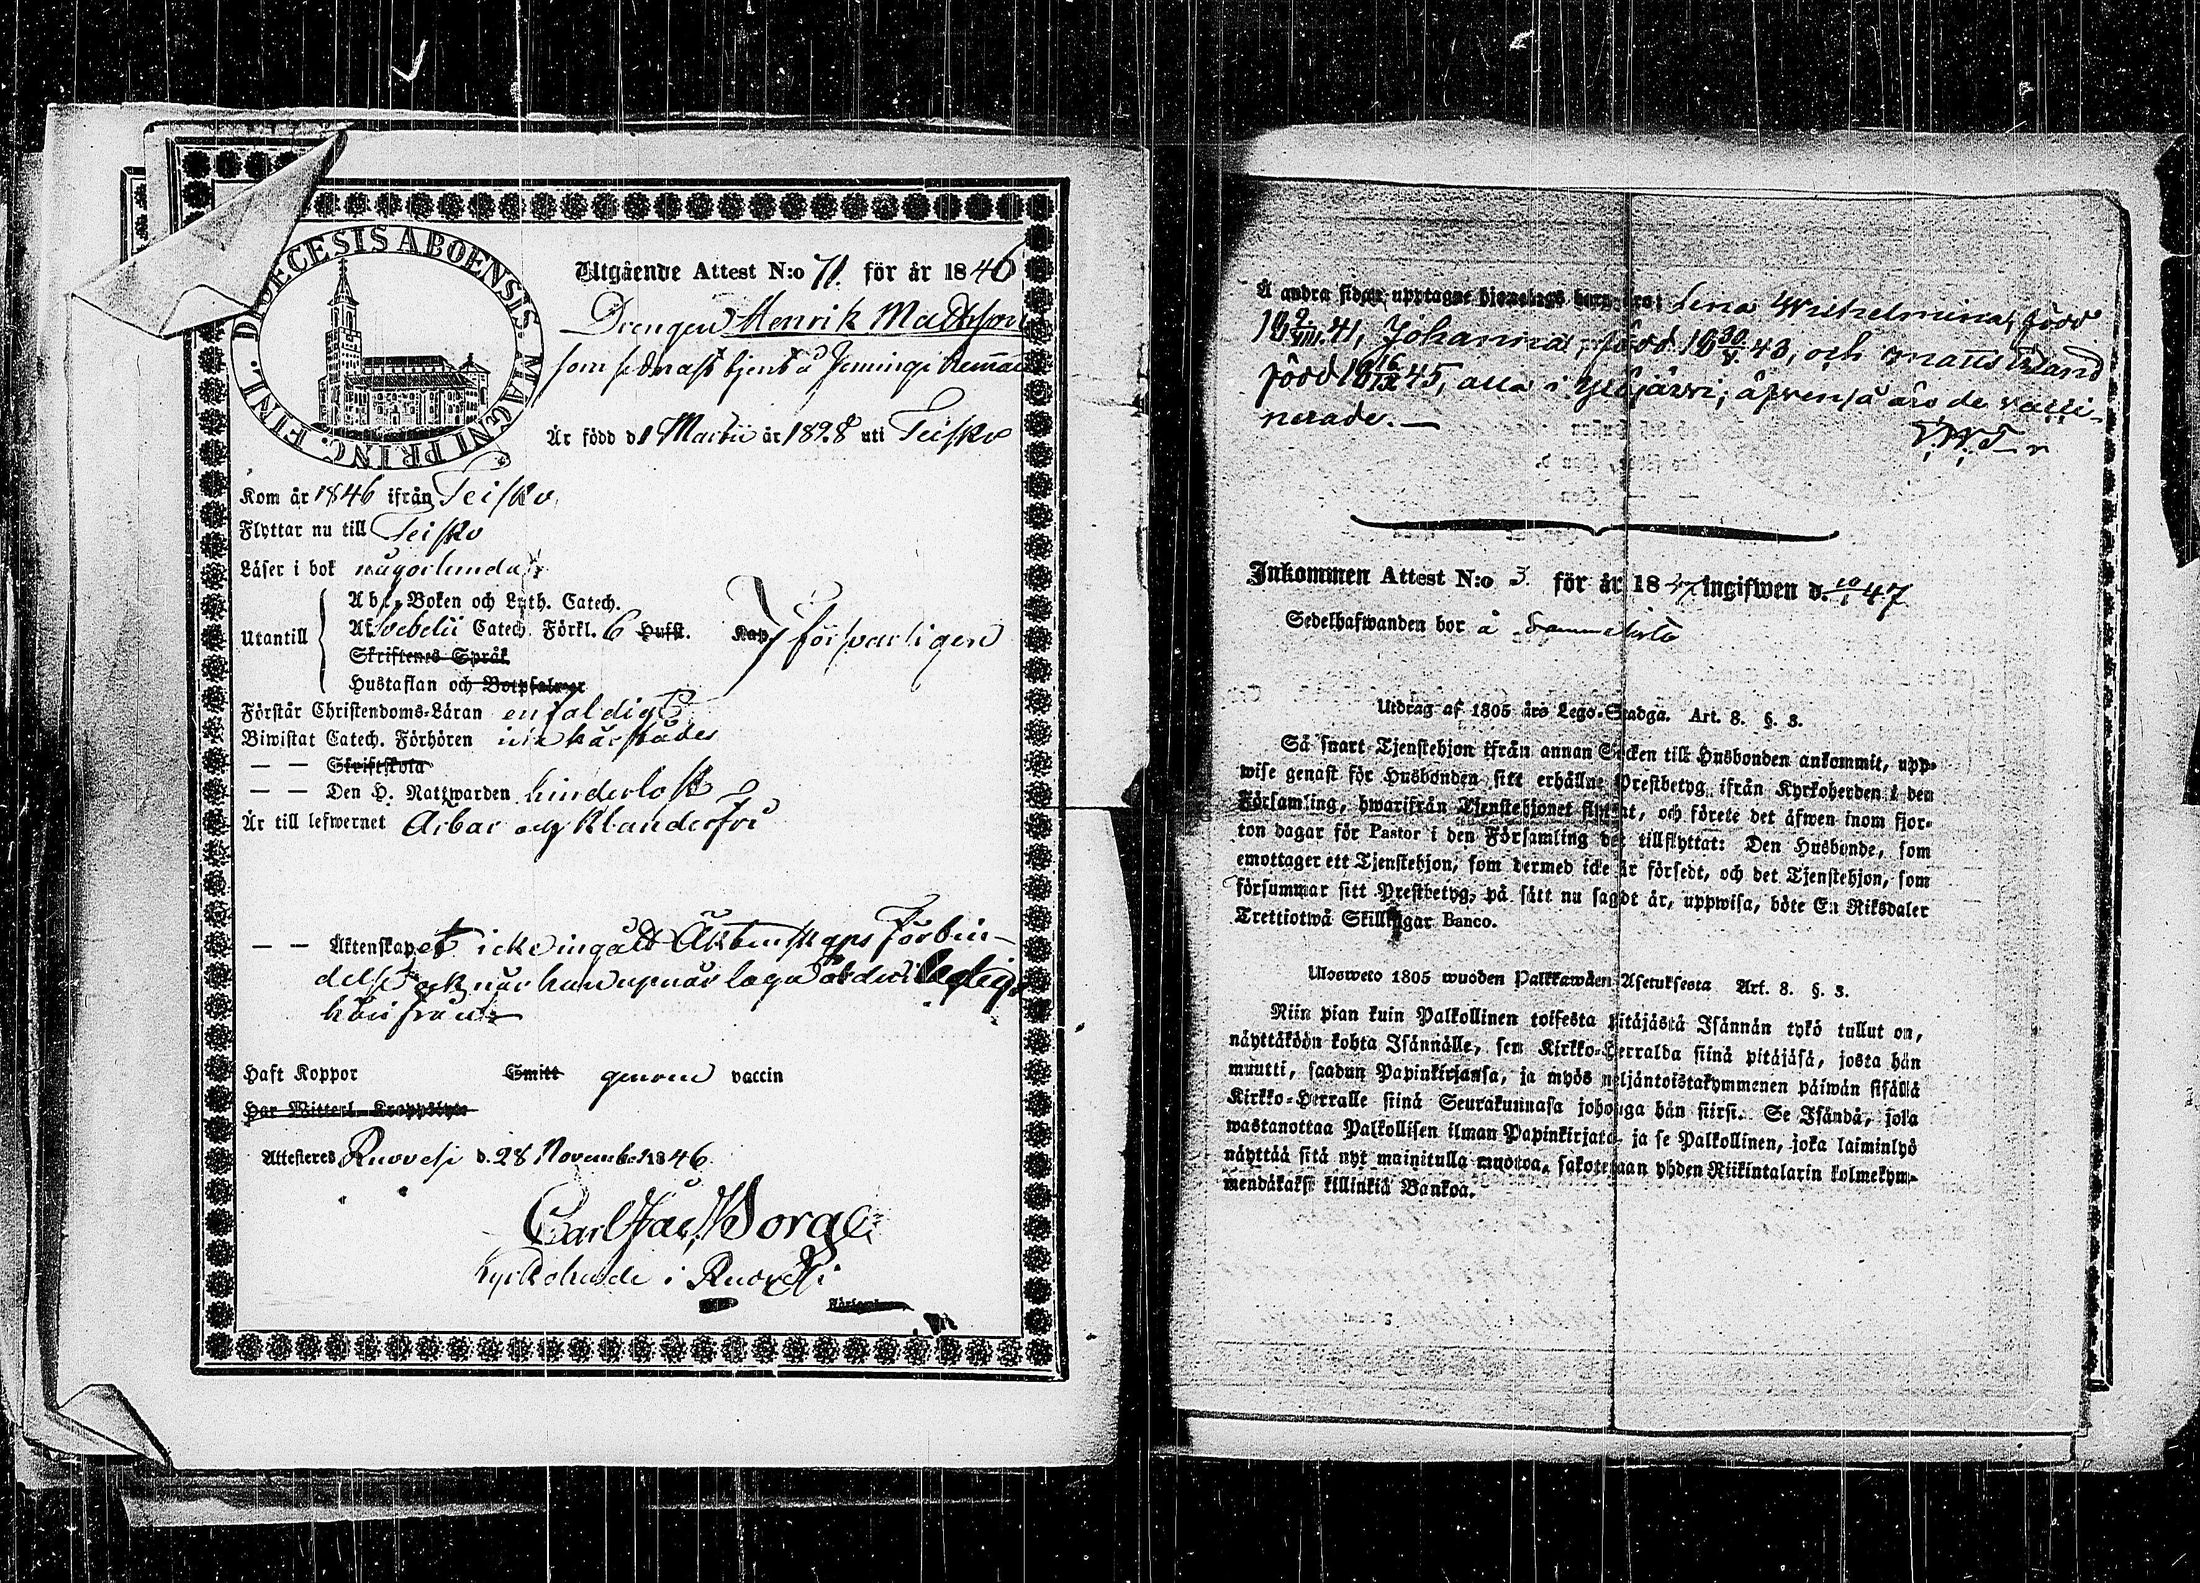 DIOECESIS ABOENSIS. MAGNI PRINC. FINL.
Utgående Attest N:o 71. för år 1846
Drengen Henrik Mathsson
som sednast tjent å Jenninge Remman
Är född d. 1 Martii år 1828 uti Teisko
Kom år 1846 ifrån Teisko
Flyttar nu till Teisko
Läser i bok någorlunda
Abc-Boken och Luth. Catech.
Utantill Af Svebelii Catech. Förkl. 6 Hufst. Kap. försvarligen
Skriftenes Språk
Hustaflan och Botpsalmer
Förstår Christendoms-Läran enfaldigt
Biwistat Catech. Förhören härstädes
— — Skriftskola
— — Den H. Nattwarden hinderlöst
Är till lefwernet Ärbar och Klanderfri
— — Äktenskapet icke ingått Äktenskaps Förbin-
delse och när han uppnår laga ålder ledig
härifrån
Haft Koppor Smitt genom vaccin
Har Witterl. Kroppslyte
Attesteras Ruovesi d. 28 November 1846
Carl Jac. Borg
Kyrkoherde i Ruovesi
Å andra sidan upptagne hjonelags barn äro: Lena Wilhelmina, född
18 9/VIII 41, Johanna, född 18 30/V 43, och
född 18 16/IX 45, alla i Ylöjärvi; äfvenså äro de vacci-
nerade. —
Inkommen Attest N:o 3. för år 1847 ingifwen d. 10/1 47
Sedelhafwanden bor å
Utdrag af 1805 års Lego-Stadga. Art. 8. §. 3.
Så snart Tjenstehjon ifrån annan Socken till Husbonden ankommit, upp-
wise genast för Husbonden sitt erhållne Prestbetyg ifrån Kyrkoherden i den
Församling, hwarifrån Tjenstehjonet flyttat, och förete det äfwen inom fjor-
ton dagar för Pastor i den Församling det tillflyttat: Den Husbonde, som
emottager ett Tjenstehjon, som dermed icke är försedt, och det Tjenstehjon, som
försummar sitt Prestbetyg, på sätt nu sagdt är, uppwisa, böte En Riksdaler
Trettiotwå Skillingar Banco.
Ulosweto 1805 wuoden Palkkawäen Asetuksesta Art. 8. §. 3.
Niin pian kuin Palkollinen toisesta pitäjästä Isännän tykö tullut on,
näyttäköön kohta Isännälle, sen Kirkko-Herralda siinä pitäjäsä, josta hän
muutti, saadun Papinkirjansa, ja myös neljäntoistakymmenen päiwän sisällä
Kirkko-Herralle siinä Seurakunnasa johonga hän siirsi. Se Isändä, joka
wastanottaa Palkollisen ilman Papinkirjata, ja se Palkollinen, joka laiminlyö
näyttää sitä nyt mainitulla muotoa, sakotetaan yhden Riikintalarin kolmekym-
mendäkaksi killinkiä Bankoa.